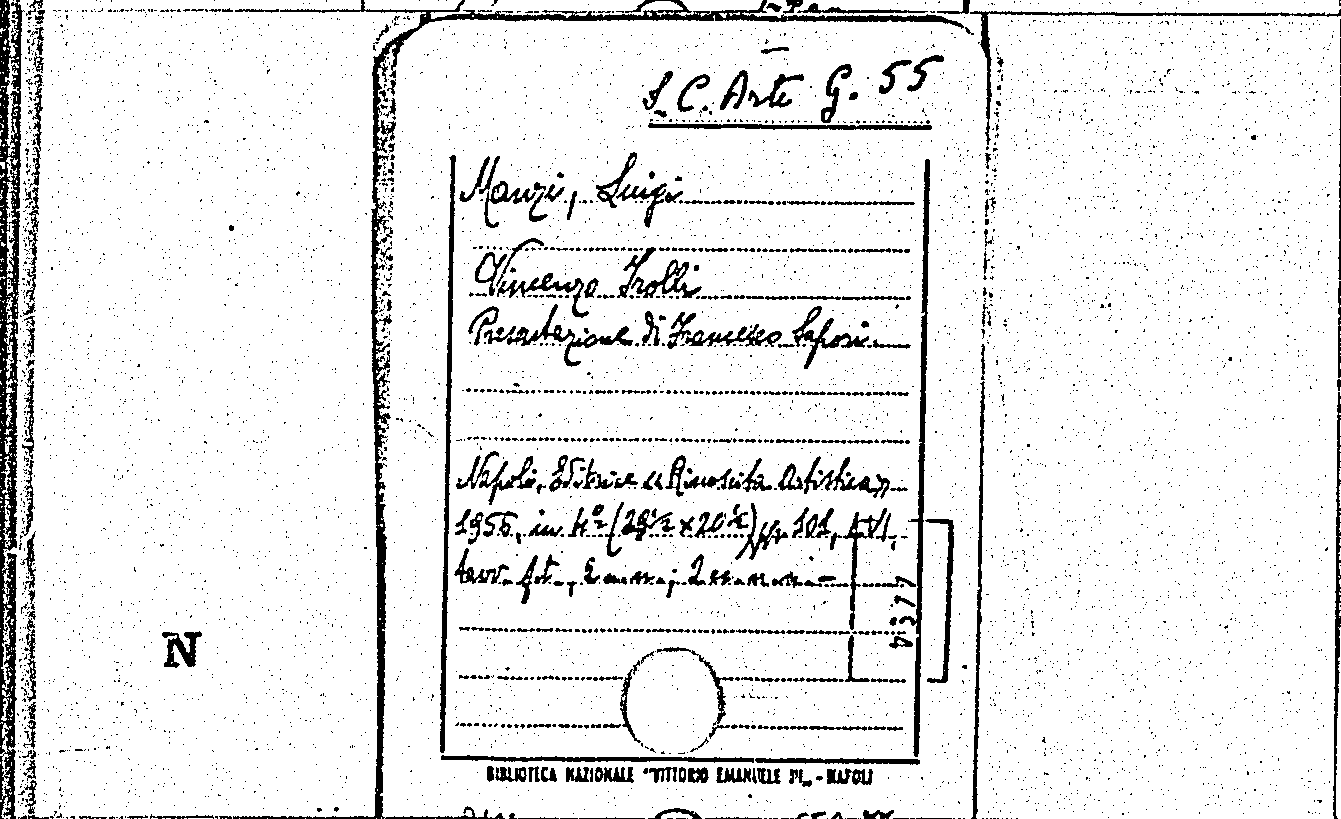 S. C. Arte G. 55
Manzi, Luigi
Vincenzo Irolli
Presentazione di Francesco Sapori.
Napoli, Editrice "Rinascita Artistica"
1955, in 4º (28½ × 20½) pp. 101,
tavv. f.t.,
N
BIBLIOTECA NAZIONALE "VITTORIO EMANUELE III" - NAPOLI